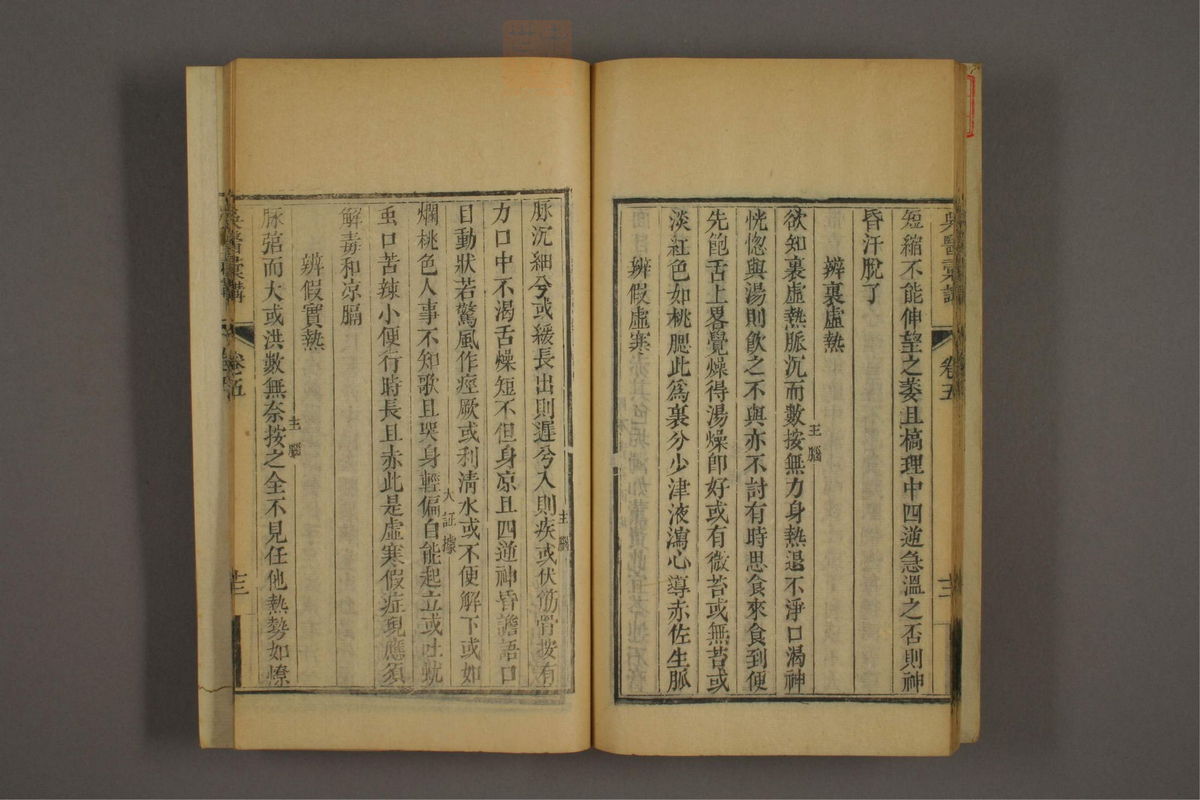 吳醫彙講
卷五
十三
短縮不能伸望之萎且槁理中四逆急溫之否則神
昏汗脫了
辨裏虛熱
欲知裏虛熱脈沉而數按無力身熱退不淨口渴神
主腦
恍惚與湯則飲之不與亦不討有時思食來食到便
先飽舌上畧覺燥得湯燥卽好或有微苔或無苔或
淡紅色如桃腮此為裏分少津液瀉心導赤佐生脈
辨假虛寒
脈沉細兮或緩長出則遲兮入則疾或伏筋骨按有
主腦
力口中不渴舌燥短不但身凉且四逆神昏譫語口
目動狀若驚風作痙厥或利清水或不便解下或如
爛桃色人事不知歌且哭身輕偏自能起立或吐蚘
大証據
虫口苦辣小便行時長且赤此是虛寒假症現應須
解毒和凉膈
辨假實熱
脈弦而大或洪數無奈按之全不見任他熱勢如燎
主腦
吳醫彙講
卷五
十三